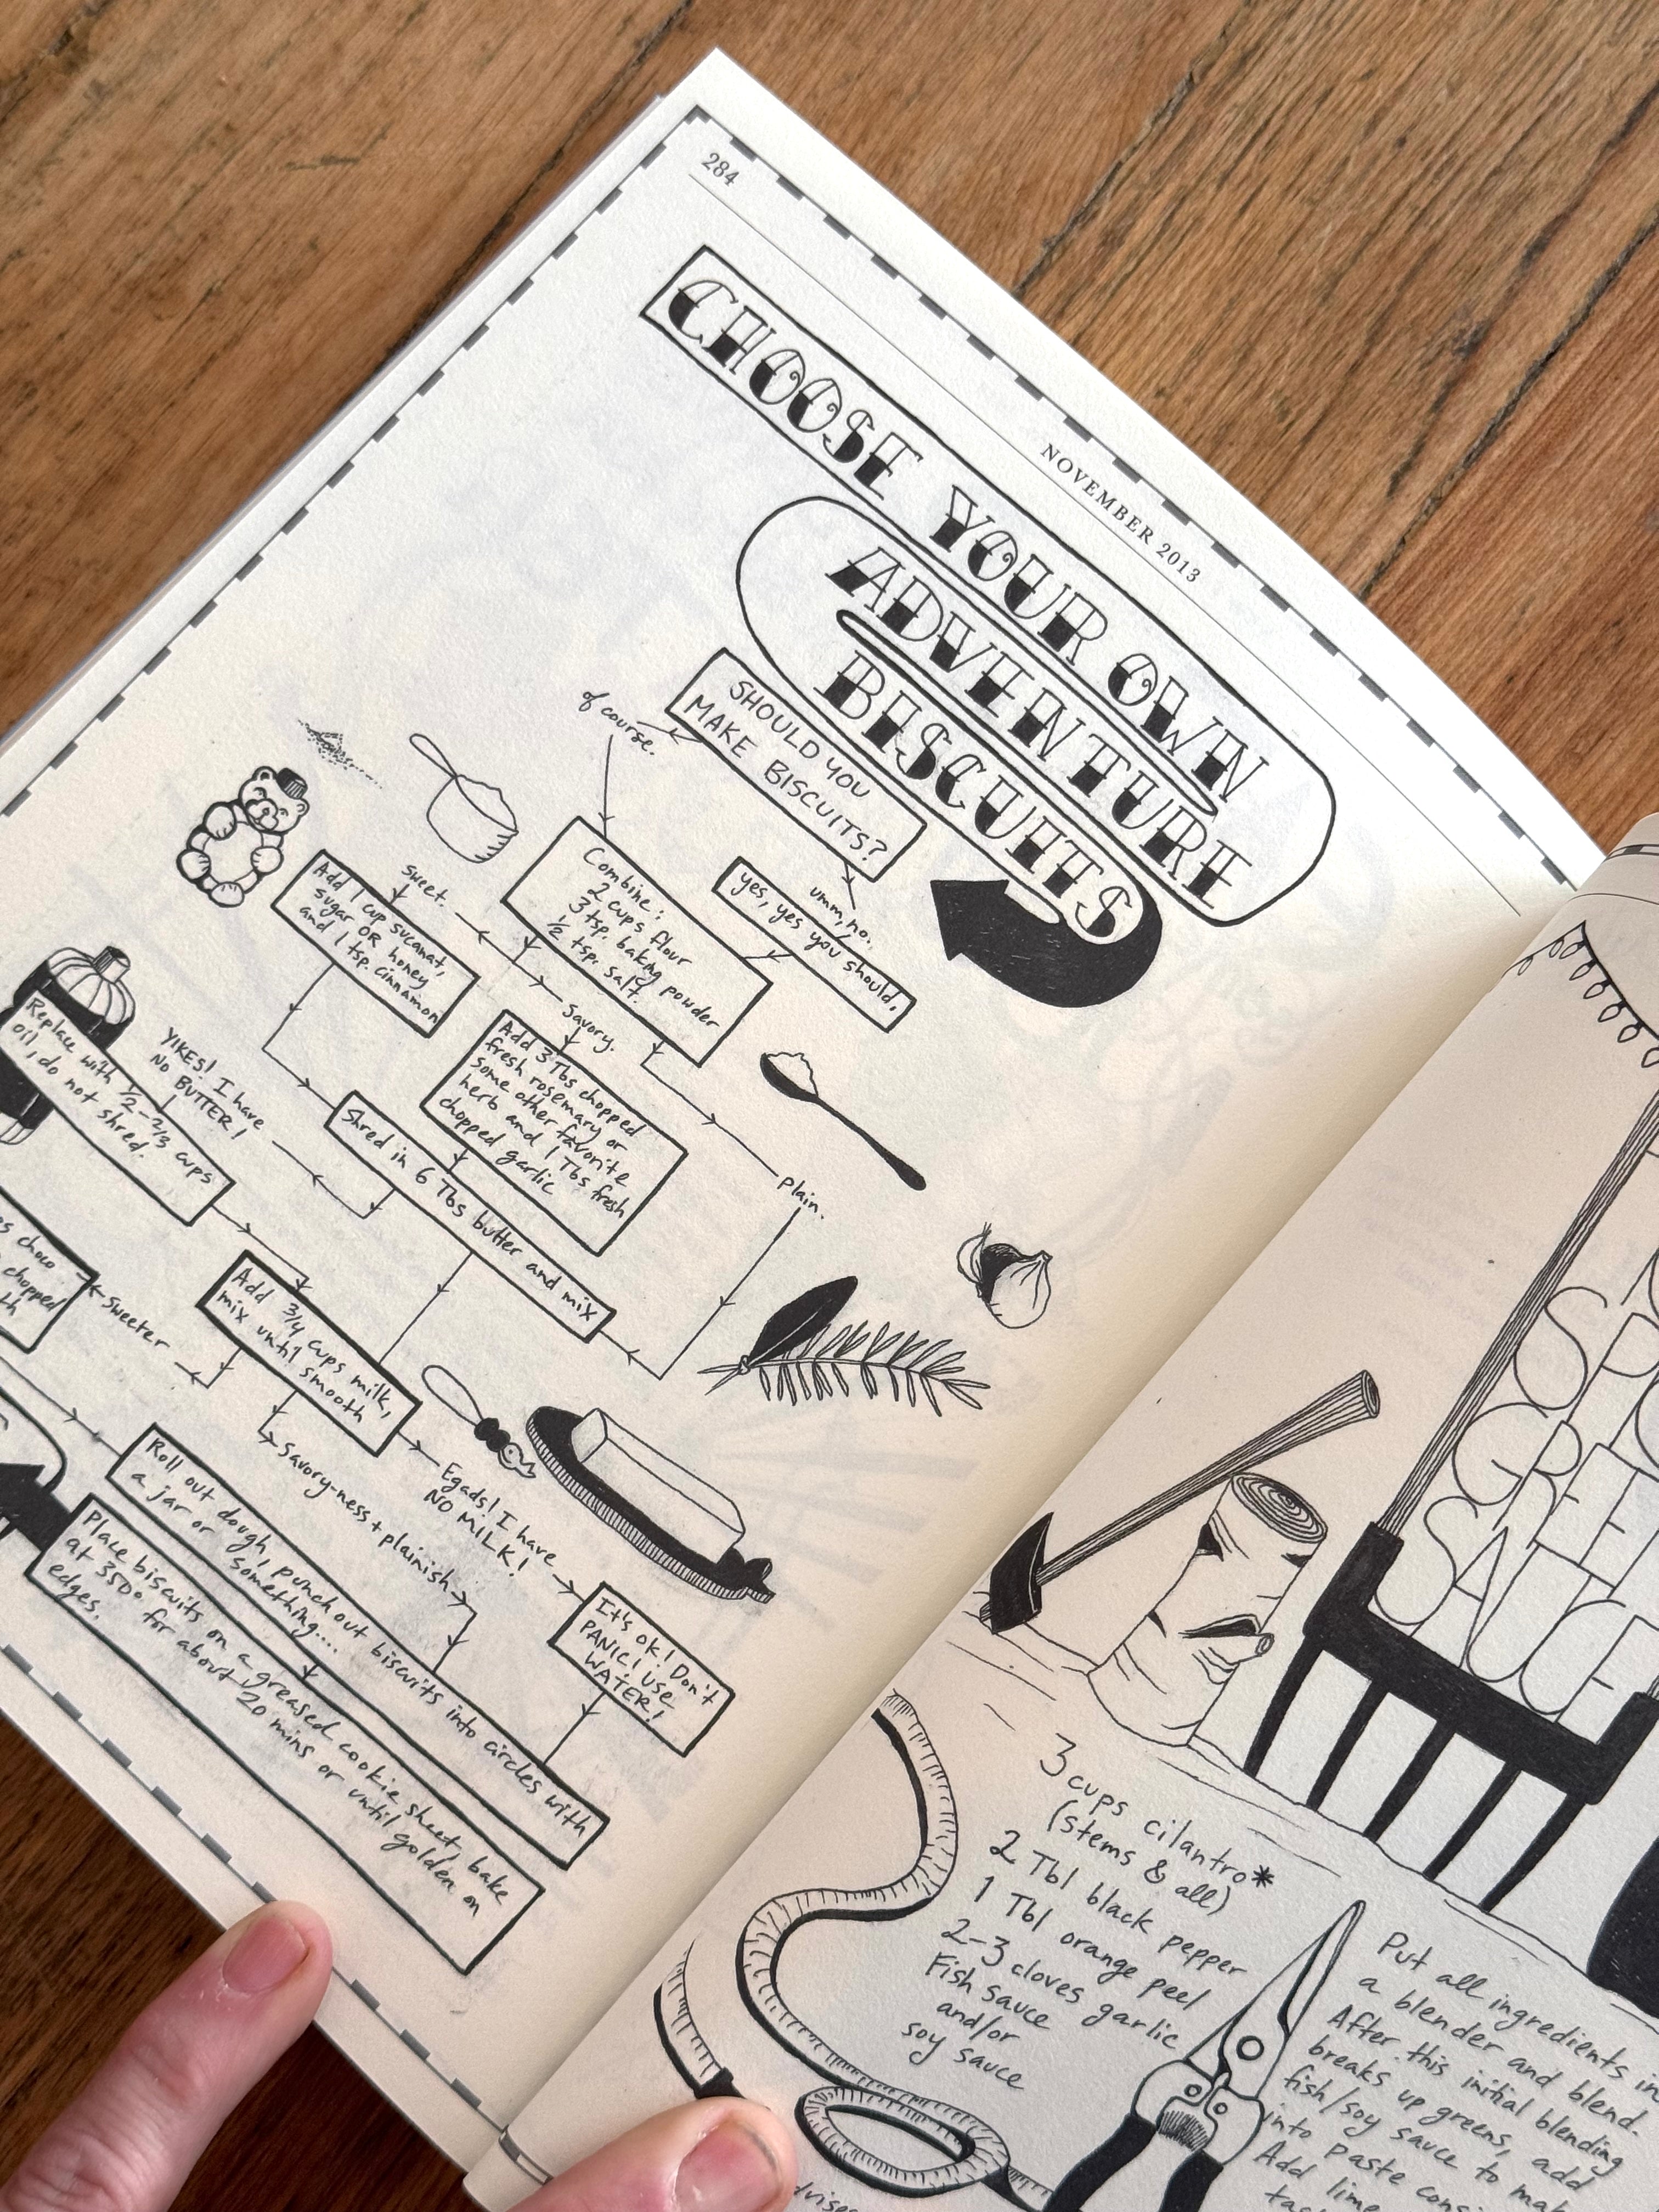 284
NOVEMBER 2013
CHOOSE YOUR OWN
ADVENTURE
BISCUITS
SHOULD YOU
MAKE BISCUITS?
of course.
umm, no.
yes, yes you should,
Combine:
2 cups flour
3 tsp. baking powder
1/2 tsp. salt.
sweet.
Savory.
plain.
Add 1 cup sucanat,
sugar OR honey
and 1 tsp. cinnamon
Add 3 Tbs chopped
fresh rosemary or
some other favorite
herb and 1 Tbs fresh
chopped garlic
Shred in 6 Tbs butter and mix
YIKES! I have
NO BUTTER!
Replace with 1/2-2/3 cups
oil, do not shred.
Add 3/4 cups milk,
mix until smooth
sweeter
choco
chopped
Savory-ness + plainish
Egads! I have
NO MILK!
It's ok! Don't
PANIC! USE
WATER!
Roll out dough, punch out biscuits into circles with
a jar or something....
Place biscuits on a greased cookie sheet, bake
at 350° for about 20 mins or until golden on
edges.
SAUCE
3 cups cilantro*
(stems & all)
2 Tbl black pepper
1 Tbl orange peel
2-3 cloves garlic
Fish sauce
and/or
soy sauce
Put all ingredients in
a blender and blend.
After this initial blending
breaks up greens, add
fish/soy sauce to
into paste
Add lime